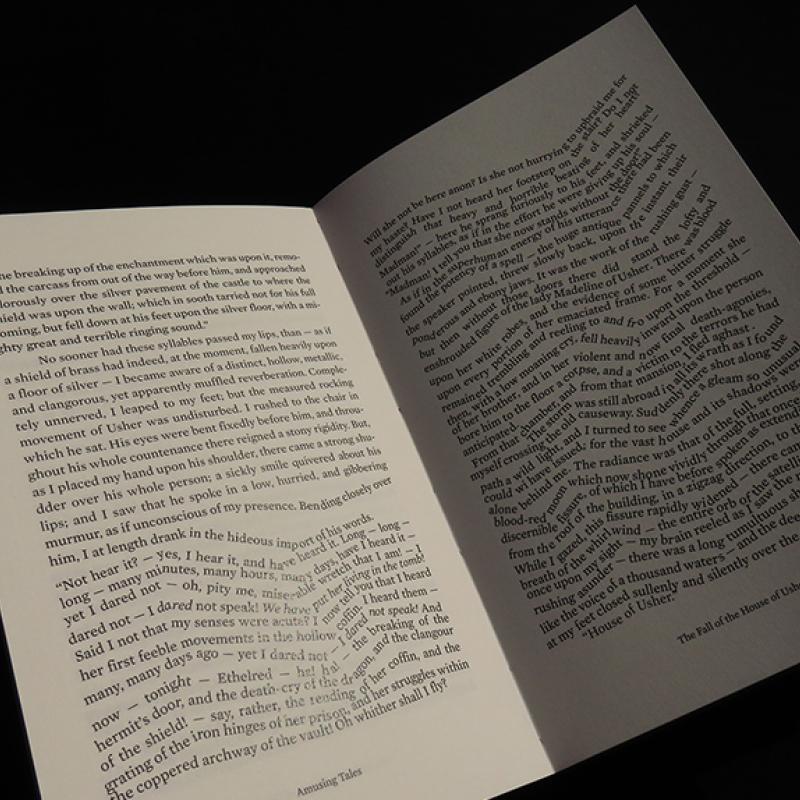 he breaking up of the enchantment which was upon it, remo-
d the carcass from out of the way before him, and approached
lorously over the silver pavement of the castle to where the
ield was upon the wall; which in sooth tarried not for his full
oming, but fell down at his feet upon the silver floor, with a mi-
ghty great and terrible ringing sound.”
No sooner had these syllables passed my lips, than — as if
a shield of brass had indeed, at the moment, fallen heavily upon
a floor of silver — I became aware of a distinct, hollow, metallic,
and clangorous, yet apparently muffled reverberation. Comple-
tely unnerved, I leaped to my feet; but the measured rocking
movement of Usher was undisturbed. I rushed to the chair in
which he sat. His eyes were bent fixedly before him, and throu-
ghout his whole countenance there reigned a stony rigidity. But,
as I placed my hand upon his shoulder, there came a strong shu-
dder over his whole person; a sickly smile quivered about his
lips; and I saw that he spoke in a low, hurried, and gibbering
murmur, as if unconscious of my presence. Bending closely over
him, I at length drank in the hideous import of his words.
“Not hear it? — yes, I hear it, and have heard it. Long — long —
long — many minutes, many hours, many days, have I heard it —
yet I dared not — oh, pity me, miserable wretch that I am! — I
dared not — I dared not speak! We have put her living in the tomb!
Said I not that my senses were acute? I now tell you that I heard
her first feeble movements in the hollow coffin. I heard them —
many, many days ago — yet I dared not — I dared not speak! And
now — tonight — Ethelred — ha! ha! — the breaking of the
hermit’s door, and the death-cry of the dragon, and the clangour
of the shield! — say, rather, the rending of her coffin, and the
grating of the iron hinges of her prison, and her struggles within
the coppered archway of the vault! Oh whither shall I fly?
Amusing Tales
Will she not be here anon? Is she not hurrying to upbraid me for
my haste? Have I not heard her footstep on the stair? Do I not
distinguish that heavy and horrible beating of her heart?
Madman!” — here he sprang furiously to his feet, and shrieked
out his syllables, as if in the effort he were giving up his soul —
“Madman! I tell you that she now stands without the door!”
As if in the superhuman energy of his utterance there had been
found the potency of a spell — the huge antique pannels to which
the speaker pointed, threw slowly back, upon the instant, their
ponderous and ebony jaws. It was the work of the rushing gust —
but then without those doors there did stand the lofty and
enshrouded figure of the lady Madeline of Usher. There was blood
upon her white robes, and the evidence of some bitter struggle
upon every portion of her emaciated frame. For a moment she
remained trembling and reeling to and fro upon the threshold —
then, with a low moaning cry, fell heavily inward upon the person
of her brother, and in her violent and now final death-agonies,
bore him to the floor a corpse, and a victim to the terrors he had
anticipated.
From that chamber, and from that mansion, I fled aghast.
The storm was still abroad in all its wrath as I found
myself crossing the old causeway. Suddenly there shot along the
path a wild light, and I turned to see whence a gleam so unusual
could wt have issued; for the vast house and its shadows were
alone behind me. The radiance was that of the full, setting,
blood-red moon which now shone vividly through that once
discernible fissure, of which I have before spoken as extend
from the roof of the building, in a zigzag direction, to th
While I gazed, this fissure rapidly widened — there cam
breath of the whirlwind — the entire orb of the satelli
once upon my sight — my brain reeled as I saw the m
rushing asunder — there was a long tumultuous sh
like the voice of a thousand waters — and the dee
at my feet closed sullenly and silently over the
“House of Usher.”
The Fall of the House of Ush